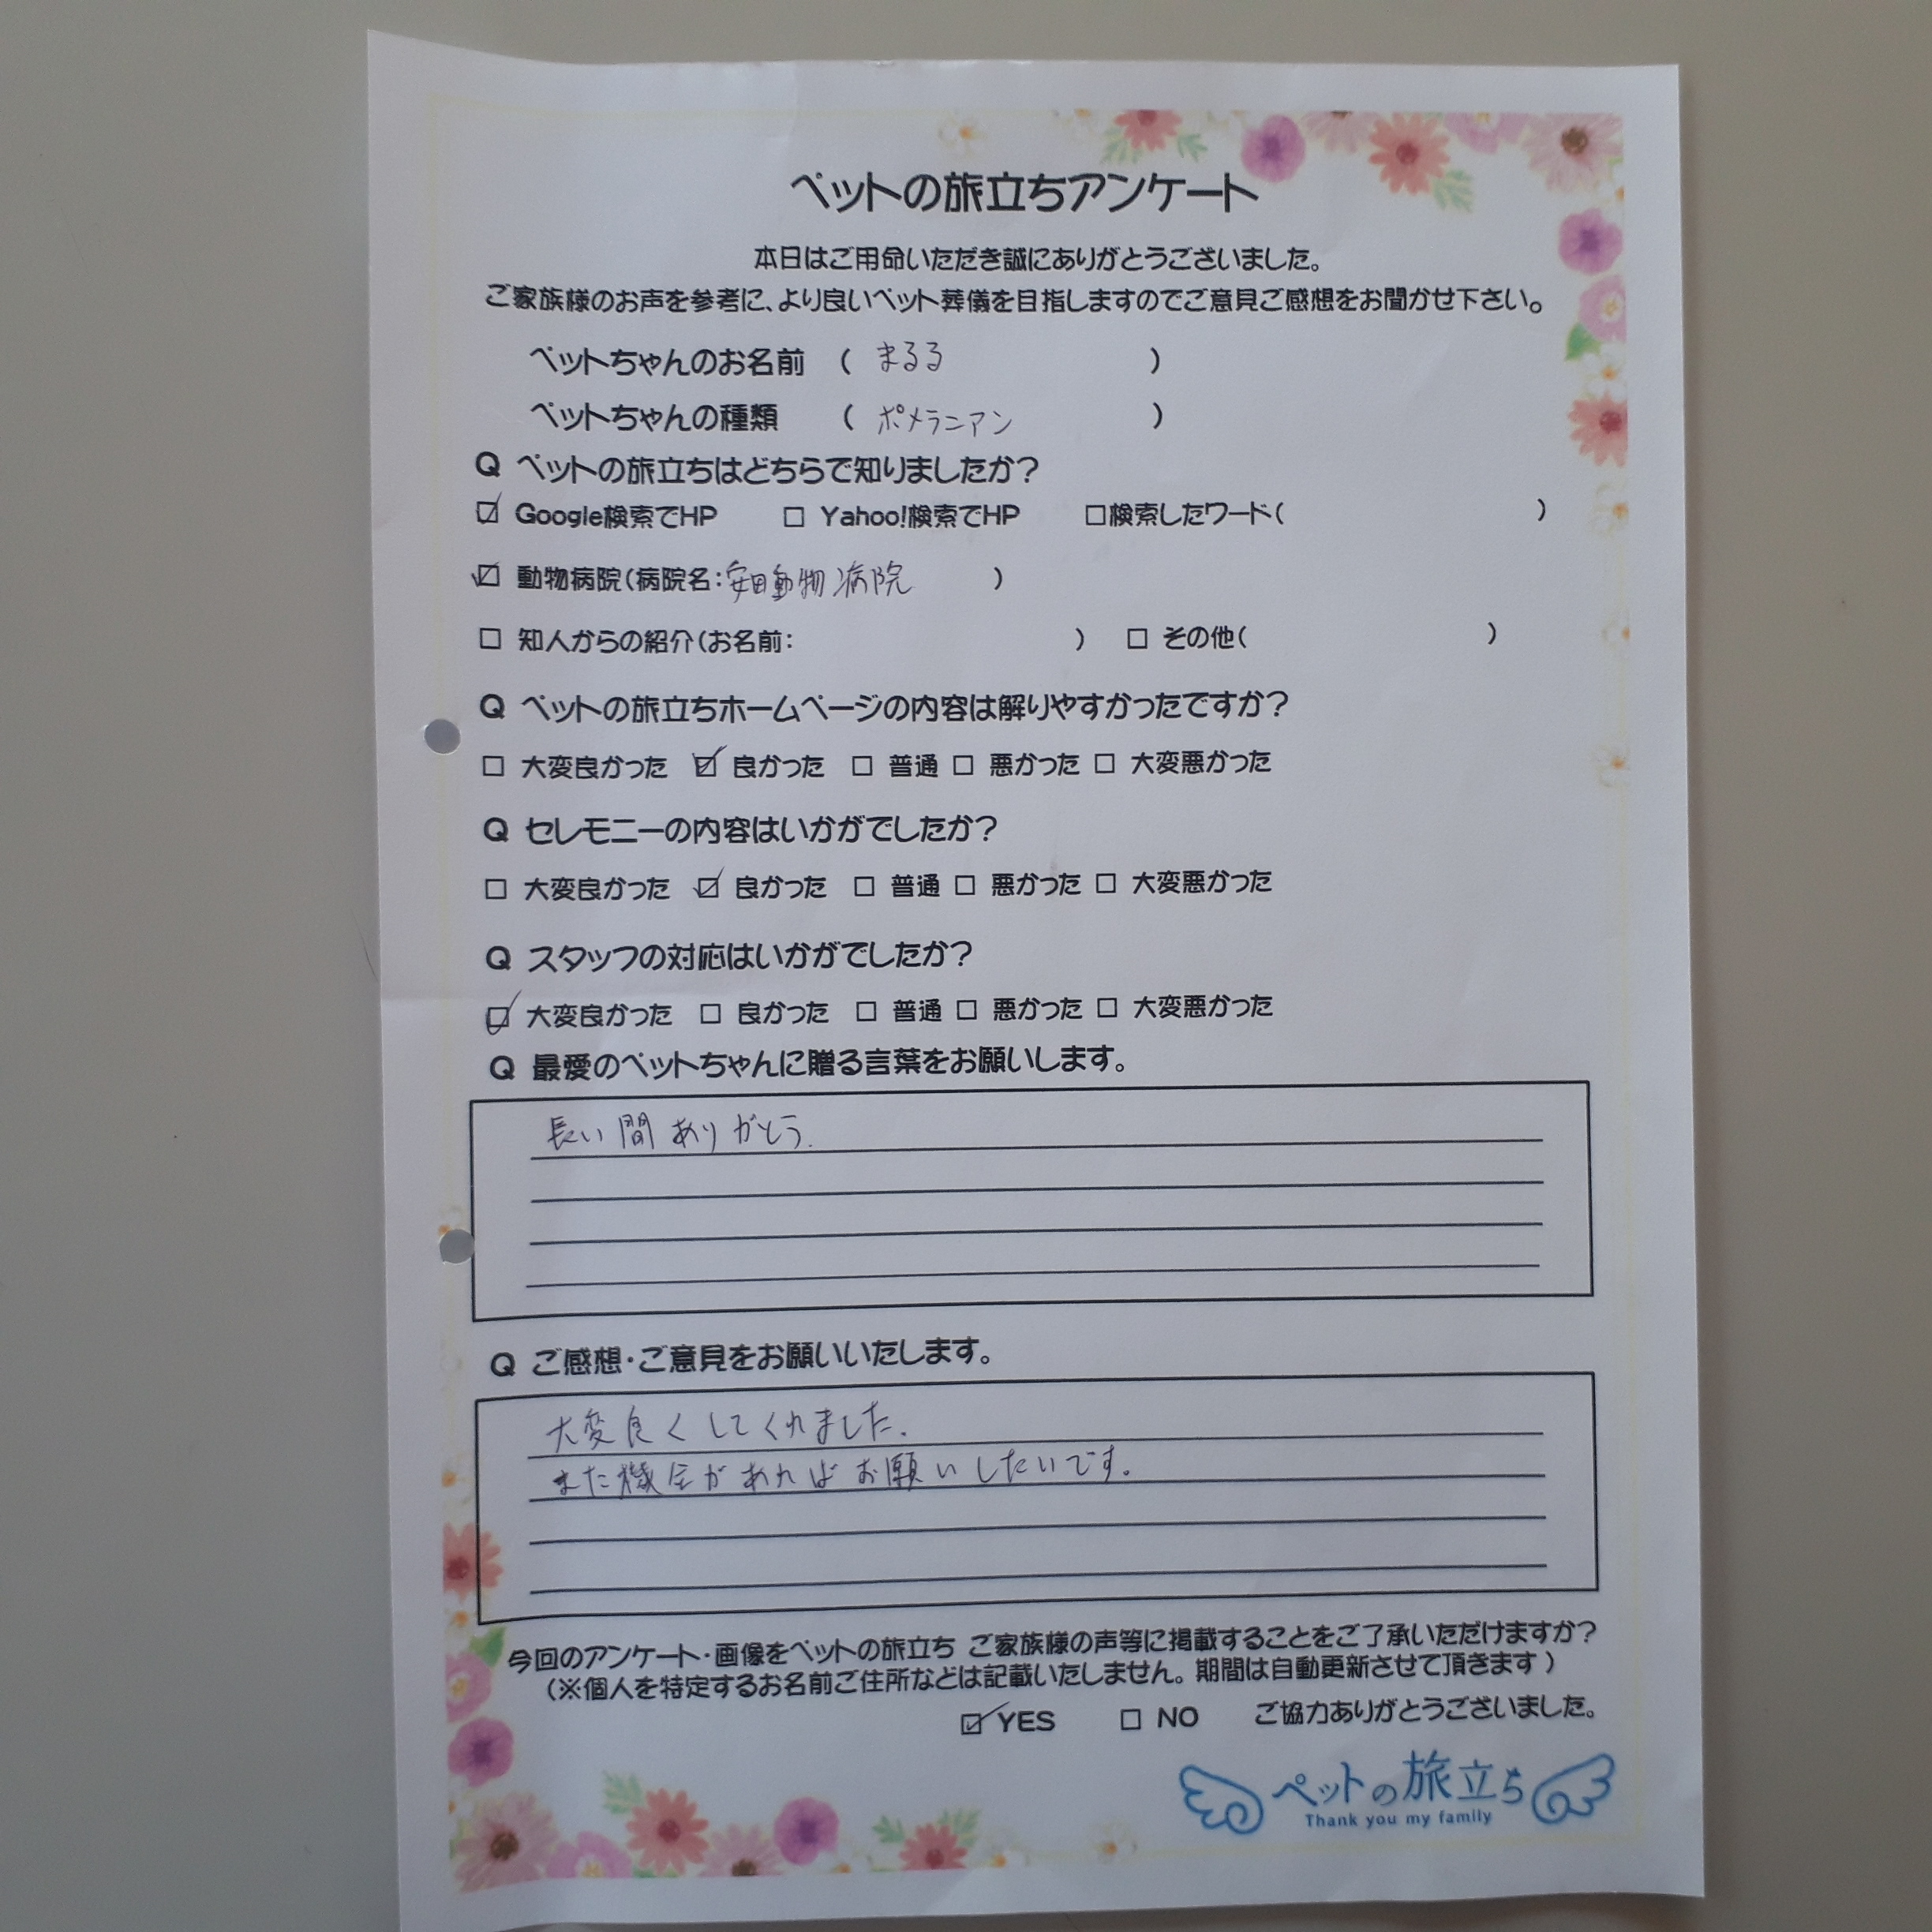 ペットの旅立ちアンケート
本日はご用命いただき誠にありがとうございました。
ご家族様のお声を参考に、より良いペット葬儀を目指しますのでご意見ご感想をお聞かせ下さい。
ペットちゃんのお名前 ( まるる )
ペットちゃんの種類 ( ポメラニアン )
Q ペットの旅立ちはどちらで知りましたか?
☑ Google検索でHP □ Yahoo!検索でHP □検索したワード( )
☑ 動物病院(病院名:安田動物病院 )
□ 知人からの紹介(お名前: ) □ その他( )
Q ペットの旅立ちホームページの内容は解りやすかったですか?
□ 大変良かった ☑ 良かった □ 普通 □ 悪かった □ 大変悪かった
Q セレモニーの内容はいかがでしたか?
□ 大変良かった ☑ 良かった □ 普通 □ 悪かった □ 大変悪かった
Q スタッフの対応はいかがでしたか?
☑ 大変良かった □ 良かった □ 普通 □ 悪かった □ 大変悪かった
Q 最愛のペットちゃんに贈る言葉をお願いします。
長い間ありがとう.
Q ご感想・ご意見をお願いいたします。
大変良くしてくれました.
また機会があればお願いしたいです。
今回のアンケート・画像をペットの旅立ち ご家族様の声等に掲載することをご了承いただけますか?
(※個人を特定するお名前ご住所などは記載いたしません。期間は自動更新させて頂きます)
☑ YES □ NO ご協力ありがとうございました。
ペットの旅立ち
Thank you my family